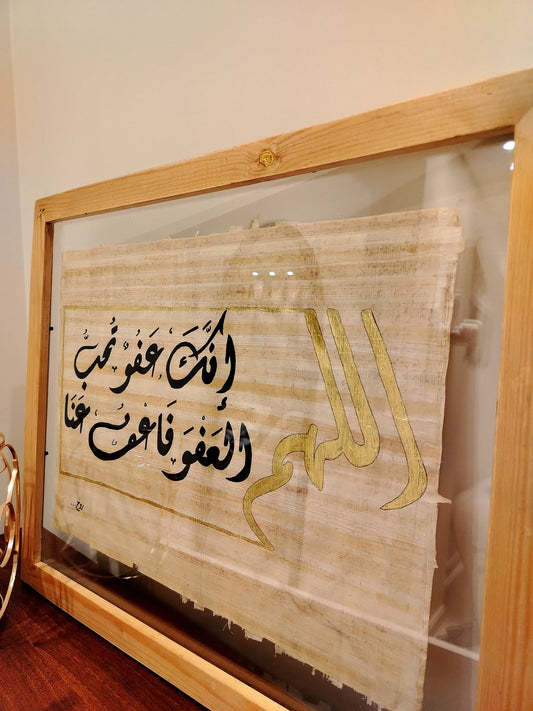 اللهم
إنَّكَ عَفُوٌ تُحبُّ
العَفْوَ فَاعفُ عَنَا